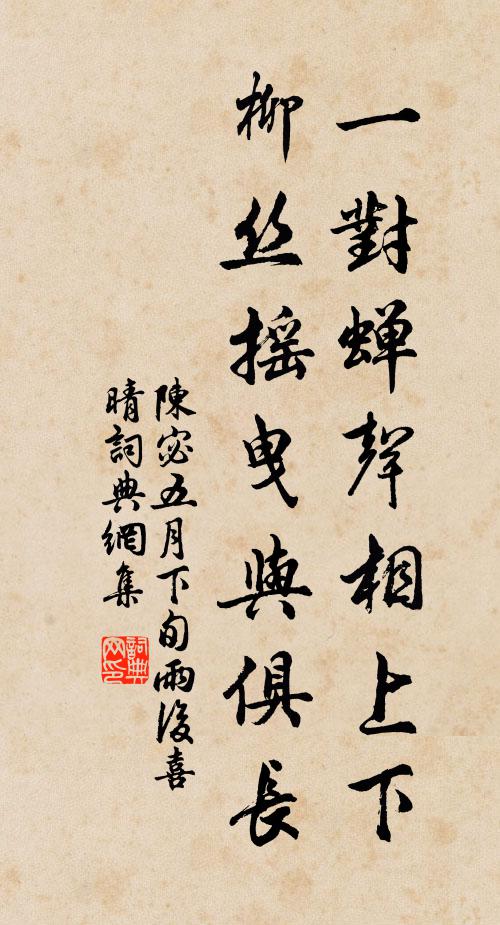 一對蟬聲相上下
柳丝摇曳與俱長
陳宓五月下旬雨後喜
晴詞典網集
詞典网印